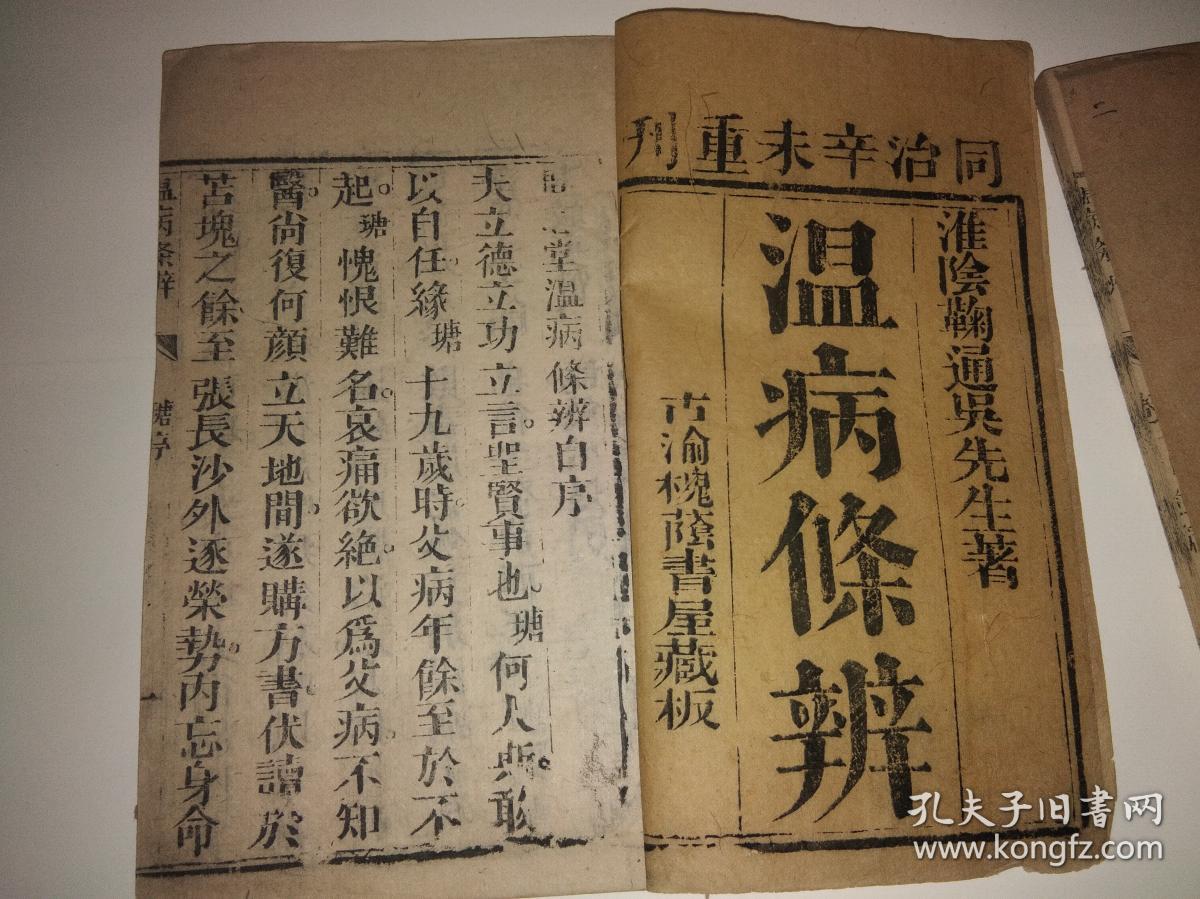 同治辛未重刊
淮陰鞠通吳先生著
温病條辨
古渝槐蔭書屋藏板
堂温病條辨自序
夫立德立功立言聖賢事也。瑭何人斯。敢
以自任緣瑭十九歲時。父病年餘至於不
起。瑭愧恨難名。哀痛欲絶。以爲父病。不知
醫。尚復何顔立天地間。遂購方書。伏讀於
苫塊之餘。至張長沙外逐榮勢。内忘身命
温病条辨
瑭序
一
二
孔夫子旧書网
www.kongfz.com